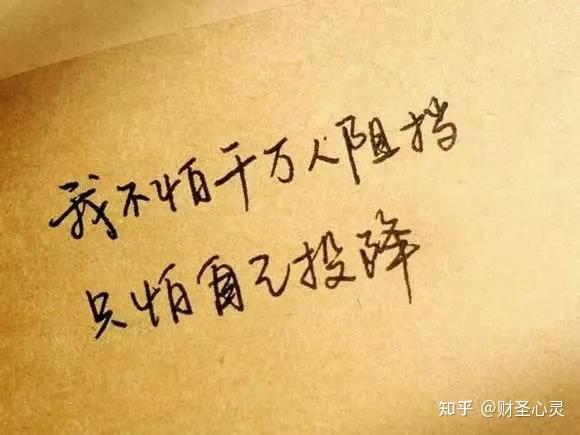 我不怕千万人阻挡
只怕自己投降
知乎 @财圣心灵